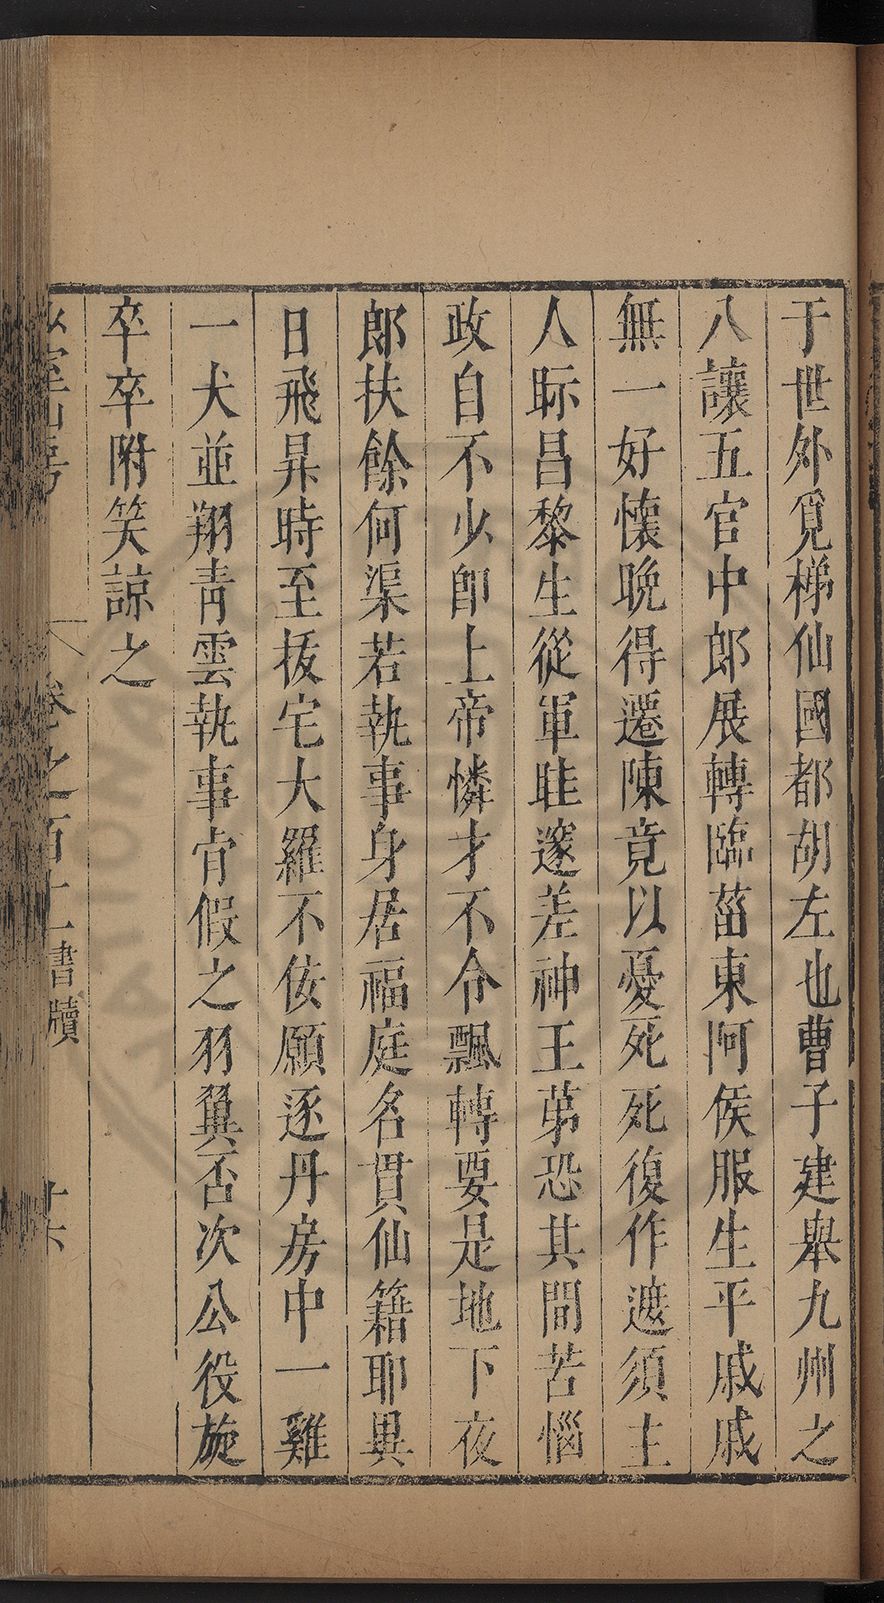 于世外覓梯仙國都胡左也曹子建舉九州之
八讓五官中郎展轉臨菑東阿侯服生平戚戚
無一好懷晚得遷陳竟以憂死死復作遮須主
人眎昌黎生從軍眭邃差神王第恐其間苦惱
政自不少卽上帝憐才不令飄轉要是地下夜
郎扶餘何渠若執事身居福庭名貫仙籍耶異
日飛昇時至拔宅大羅不佞願逐丹房中一雞
一犬並翔靑雲執事肯假之羽翼否次公役旋
卒卒附笑諒之
室山房 卷之百十二書牘